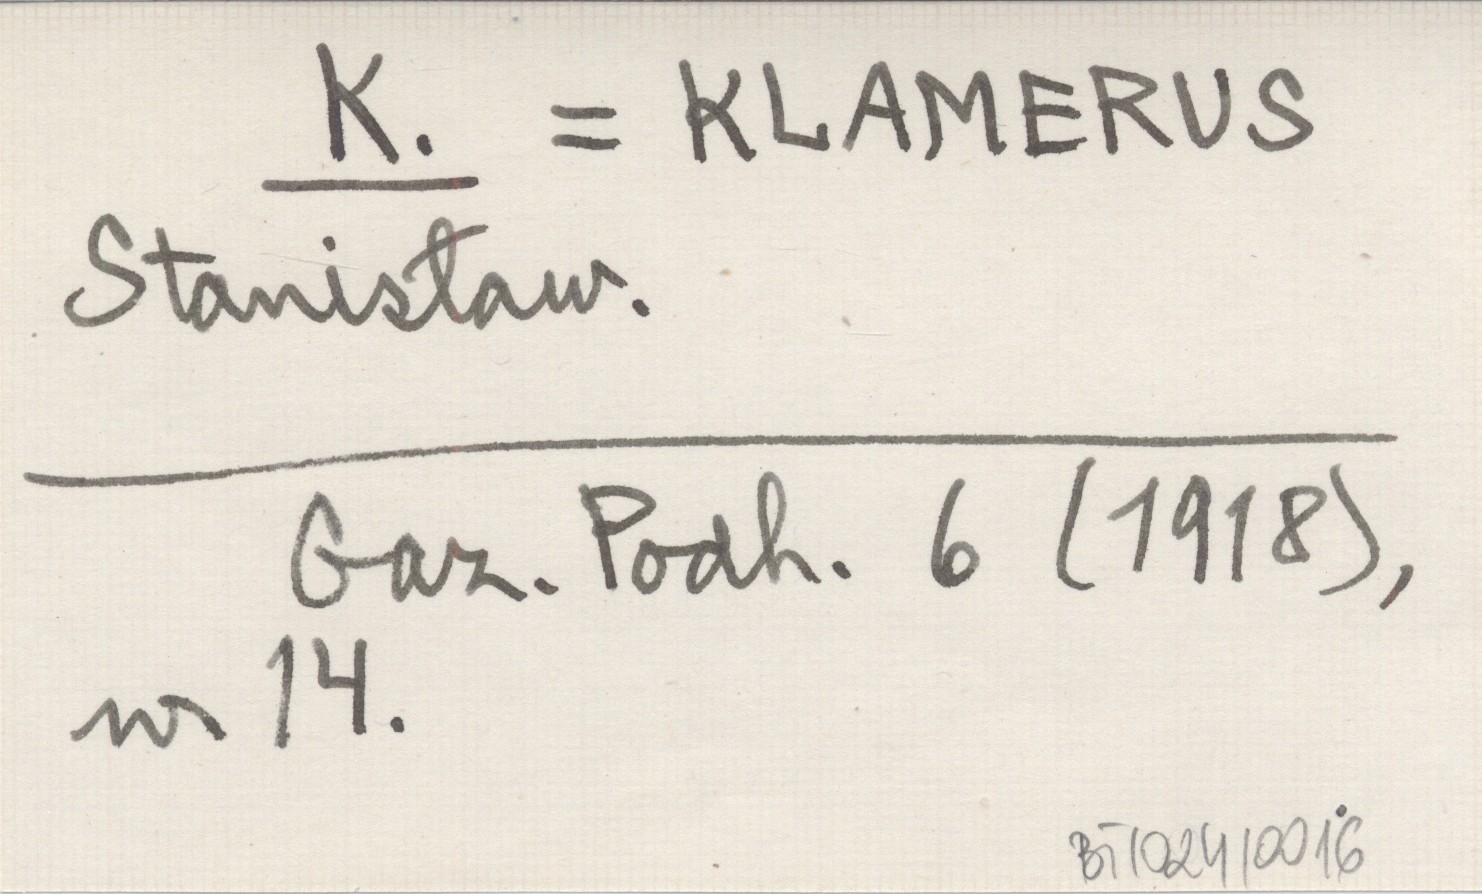 K. = KLAMERUS
Stanisław.
Gaz. Podh. 6 (1918),
nr 14.
BT/024/0016